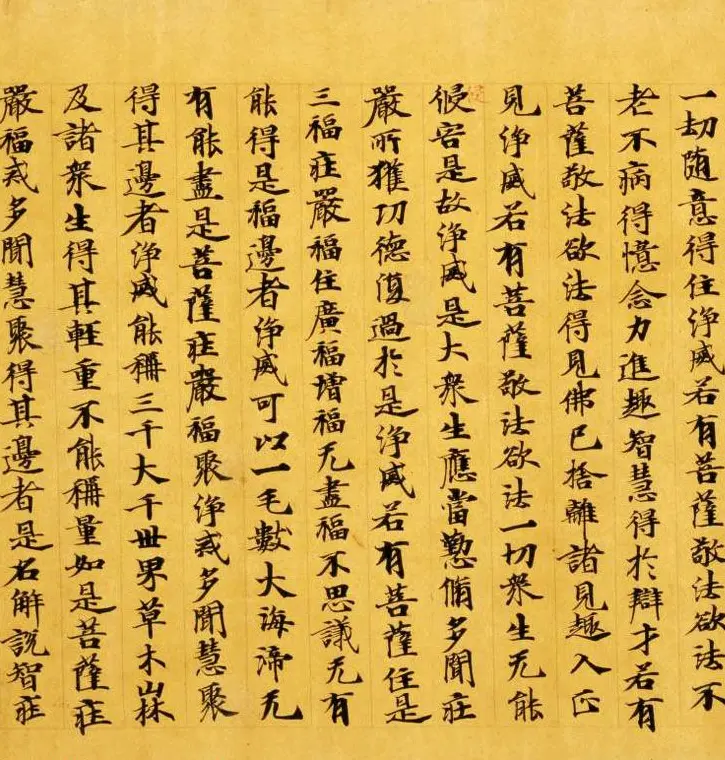 一劫随意得住淨威若有菩薩敬法欲法不
老不病得憶念力進趣智慧得於辯才若有
菩薩敬法欲法得見佛已捨離諸見趣入正
見淨威若有菩薩敬法欲法一切衆生无能
候害是故淨威是大衆生應當懃脩多聞莊
嚴所獲功德復過於是淨威若有菩薩住是
三福莊嚴福住廣福增福无盡福不思議无有
能得是福邊者淨威可以一毛數大海渧无
有能盡是菩薩莊嚴福聚淨戒多聞慧聚
得其邊者淨威能稱三千大千世界草木山林
及諸衆生得其軽重不能稱量如是菩薩莊
嚴福戒多聞慧聚得其邊者是名解說智莊